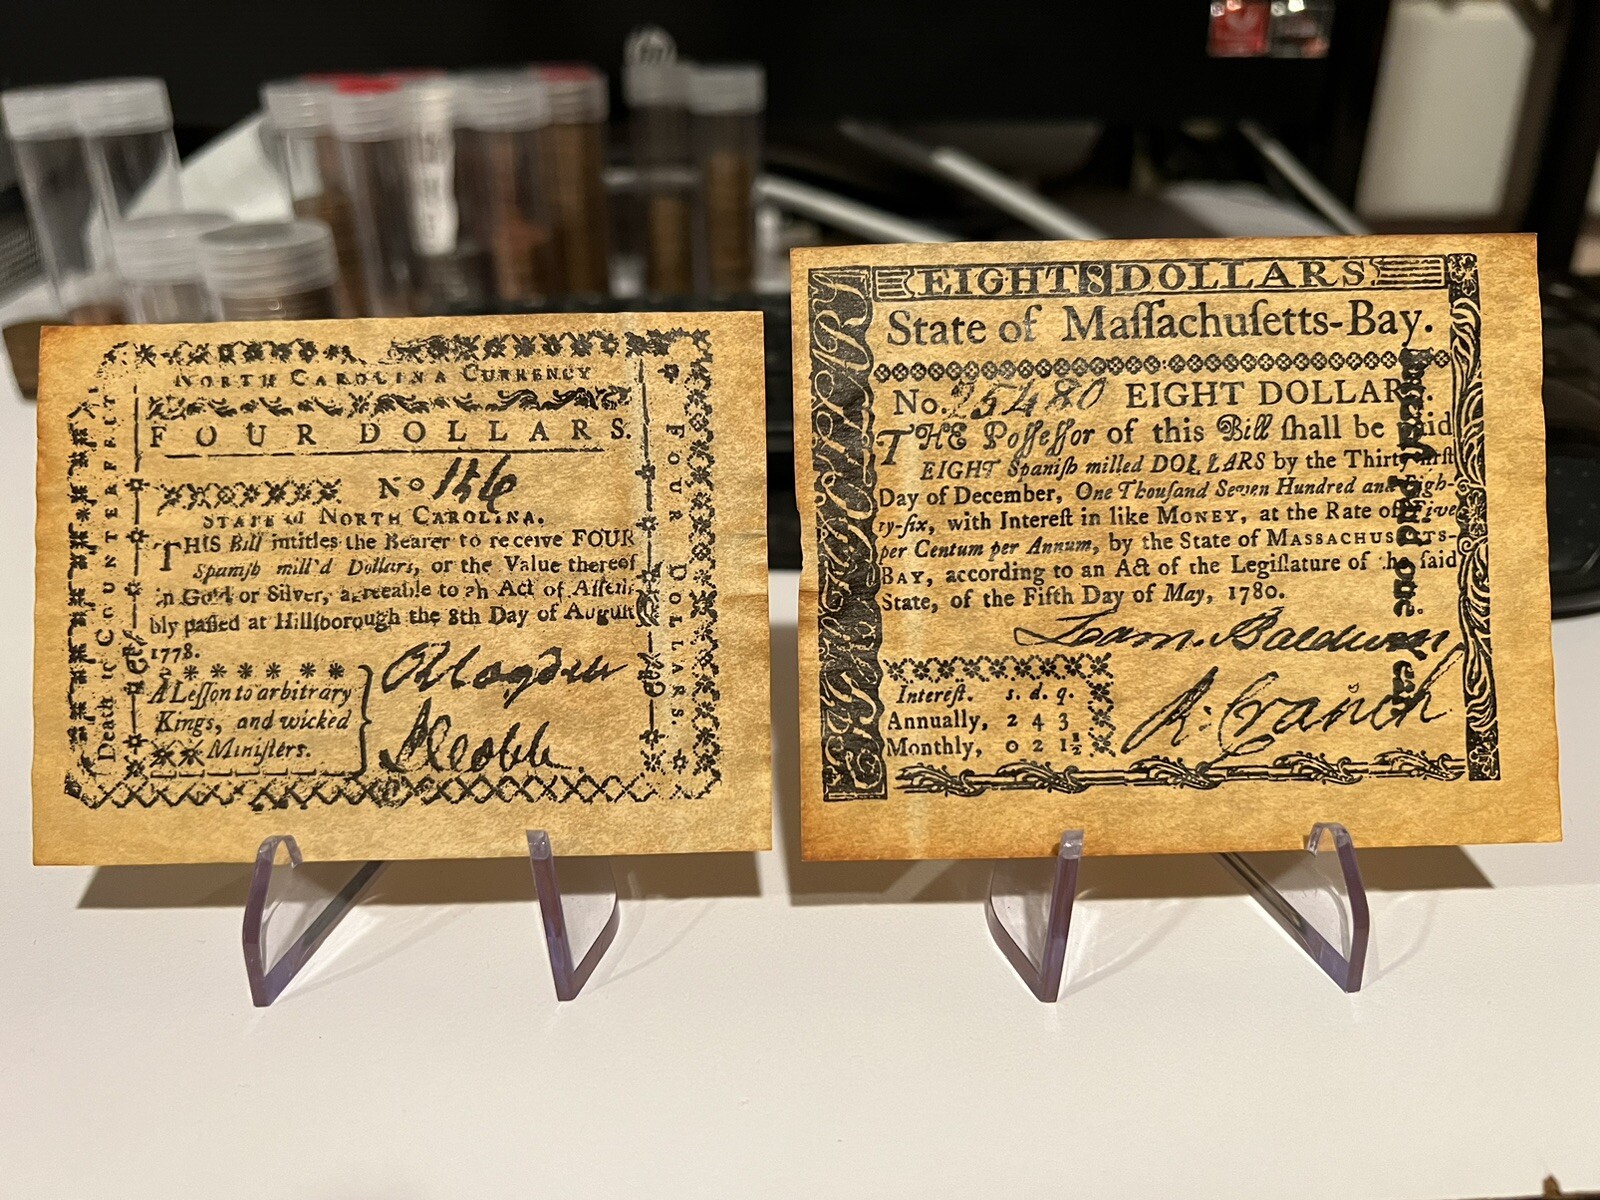 NORTH CAROLINA CURRENCY
FOUR DOLLARS.
No 156
STATE of NORTH CAROLINA.
THIS Bill intitles the Bearer to receive FOUR
Spaniſh mill'd Dollars, or the Value thereof
in Gold or Silver, agreeable to an Act of Aſſem
bly paſſed at Hillſborough the 8th Day of Auguſt
1778.
A Leſſon to arbitrary
Kings, and wicked
Miniſters.
Death to COUNTERFEIT
FOUR DOLLARS.
EIGHT 8 DOLLARS
State of Maſſachuſetts-Bay.
No. 25480 EIGHT DOLLARS.
THE Poſſeſſor of this Bill ſhall be paid
EIGHT Spaniſh milled DOLLARS by the Thirty-firſt
Day of December, One Thouſand Seven Hundred and Eigh-
ty-ſix, with Intereſt in like MONEY, at the Rate of Five
per Centum per Annum, by the State of MASSACHUSETTS-
BAY, according to an Act of the Legiſlature of the ſaid
State, of the Fifth Day of May, 1780.
Loam. Baldwin
R: Cranch
Intereſt. s. d. q.
Annually, 2 4 3
Monthly, 0 2 1½